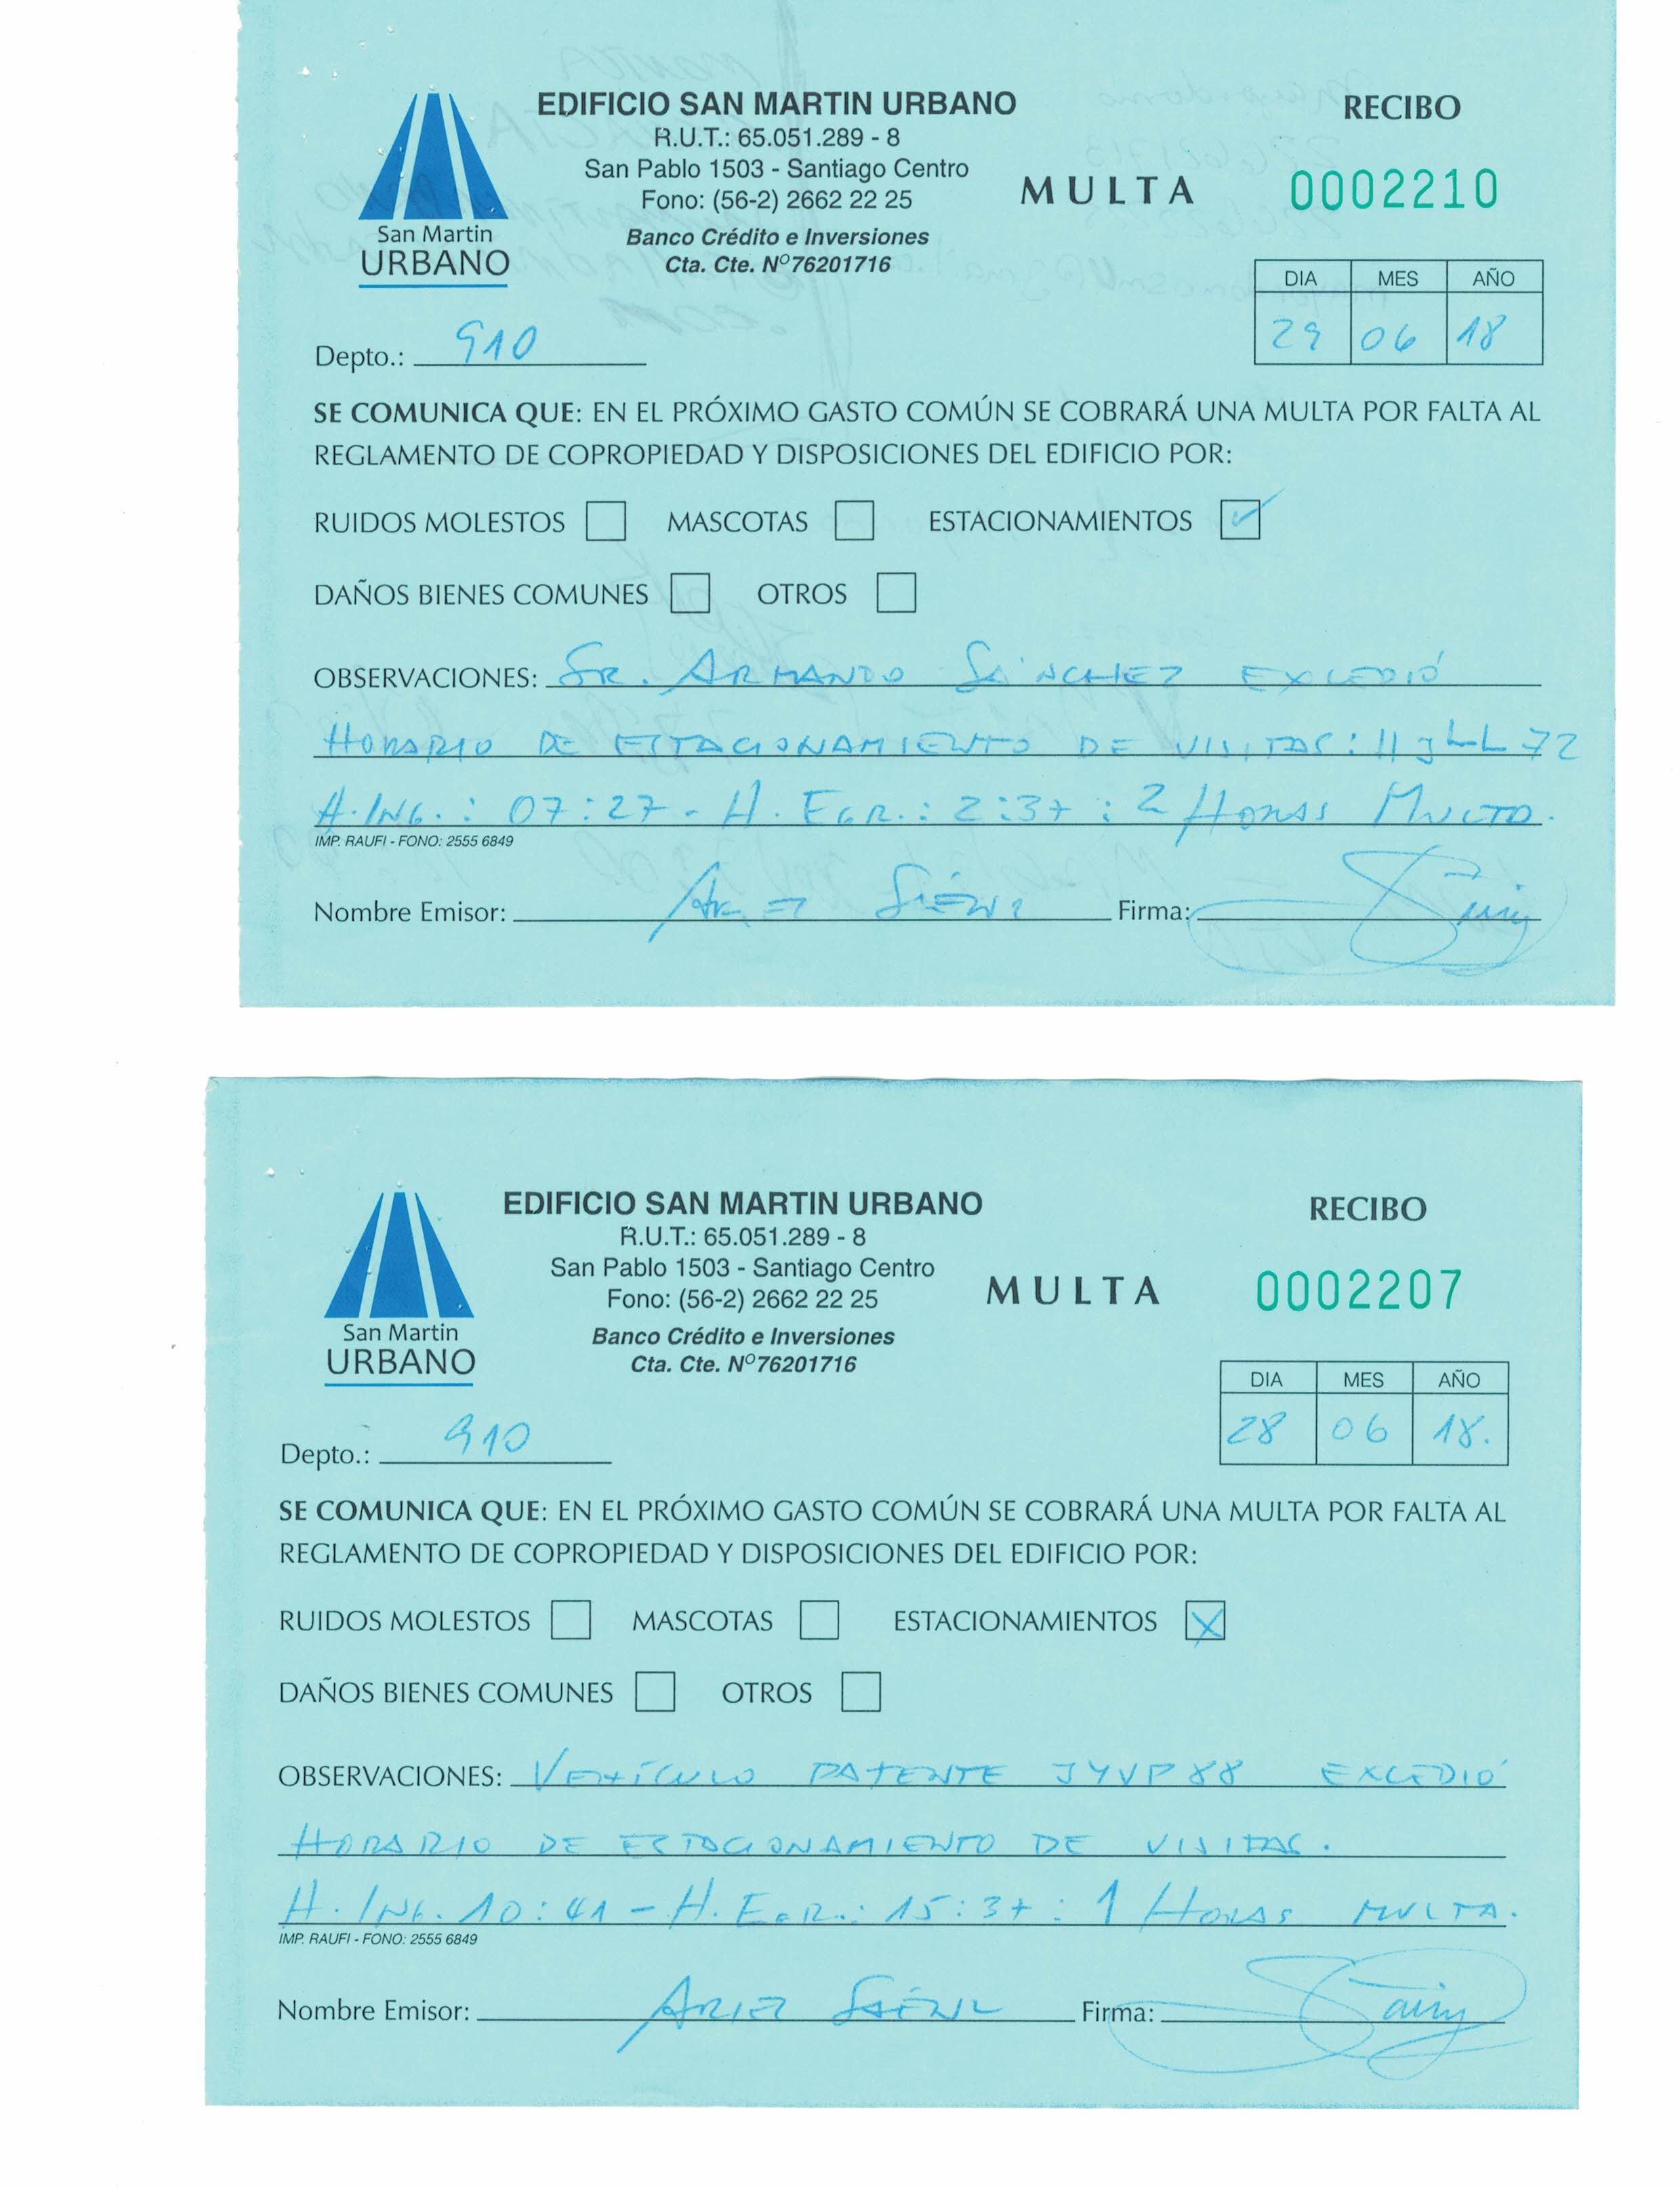 EDIFICIO SAN MARTIN URBANO
R.U.T.: 65.051.289 - 8
San Pablo 1503 - Santiago Centro
Fono: (56-2) 2662 22 25
Banco Crédito e Inversiones
Cta. Cte. Nº 76201716
San Martin
URBANO
MULTA
RECIBO
0002210
DIA MES AÑO
29 06 18
Depto.: 910
SE COMUNICA QUE: EN EL PRÓXIMO GASTO COMÚN SE COBRARÁ UNA MULTA POR FALTA AL
REGLAMENTO DE COPROPIEDAD Y DISPOSICIONES DEL EDIFICIO POR:
RUIDOS MOLESTOS MASCOTAS ESTACIONAMIENTOS ✓
DAÑOS BIENES COMUNES OTROS
OBSERVACIONES: SR. ARMANDO SÁNCHEZ EXCEDIÓ
HORARIO DE ESTACIONAMIENTO DE VISITAS:
H. ING.: 07:27 - H. EGR.: 2:37 : 2 HORAS MULTA.
IMP. RAUFI - FONO: 2555 6849
Nombre Emisor: ARIEL Firma:
EDIFICIO SAN MARTIN URBANO
R.U.T.: 65.051.289 - 8
San Pablo 1503 - Santiago Centro
Fono: (56-2) 2662 22 25
Banco Crédito e Inversiones
Cta. Cte. Nº 76201716
San Martin
URBANO
MULTA
RECIBO
0002207
DIA MES AÑO
28 06 18.
Depto.: 910
SE COMUNICA QUE: EN EL PRÓXIMO GASTO COMÚN SE COBRARÁ UNA MULTA POR FALTA AL
REGLAMENTO DE COPROPIEDAD Y DISPOSICIONES DEL EDIFICIO POR:
RUIDOS MOLESTOS MASCOTAS ESTACIONAMIENTOS X
DAÑOS BIENES COMUNES OTROS
OBSERVACIONES: VEHÍCULO PATENTE JYVP88 EXCEDIÓ
HORARIO DE ESTACIONAMIENTO DE VISITAS.
H. ING. 10:41 - H. EGR.: 15:37 : 1 HORAS MULTA.
IMP. RAUFI - FONO: 2555 6849
Nombre Emisor: ARIEL Firma: